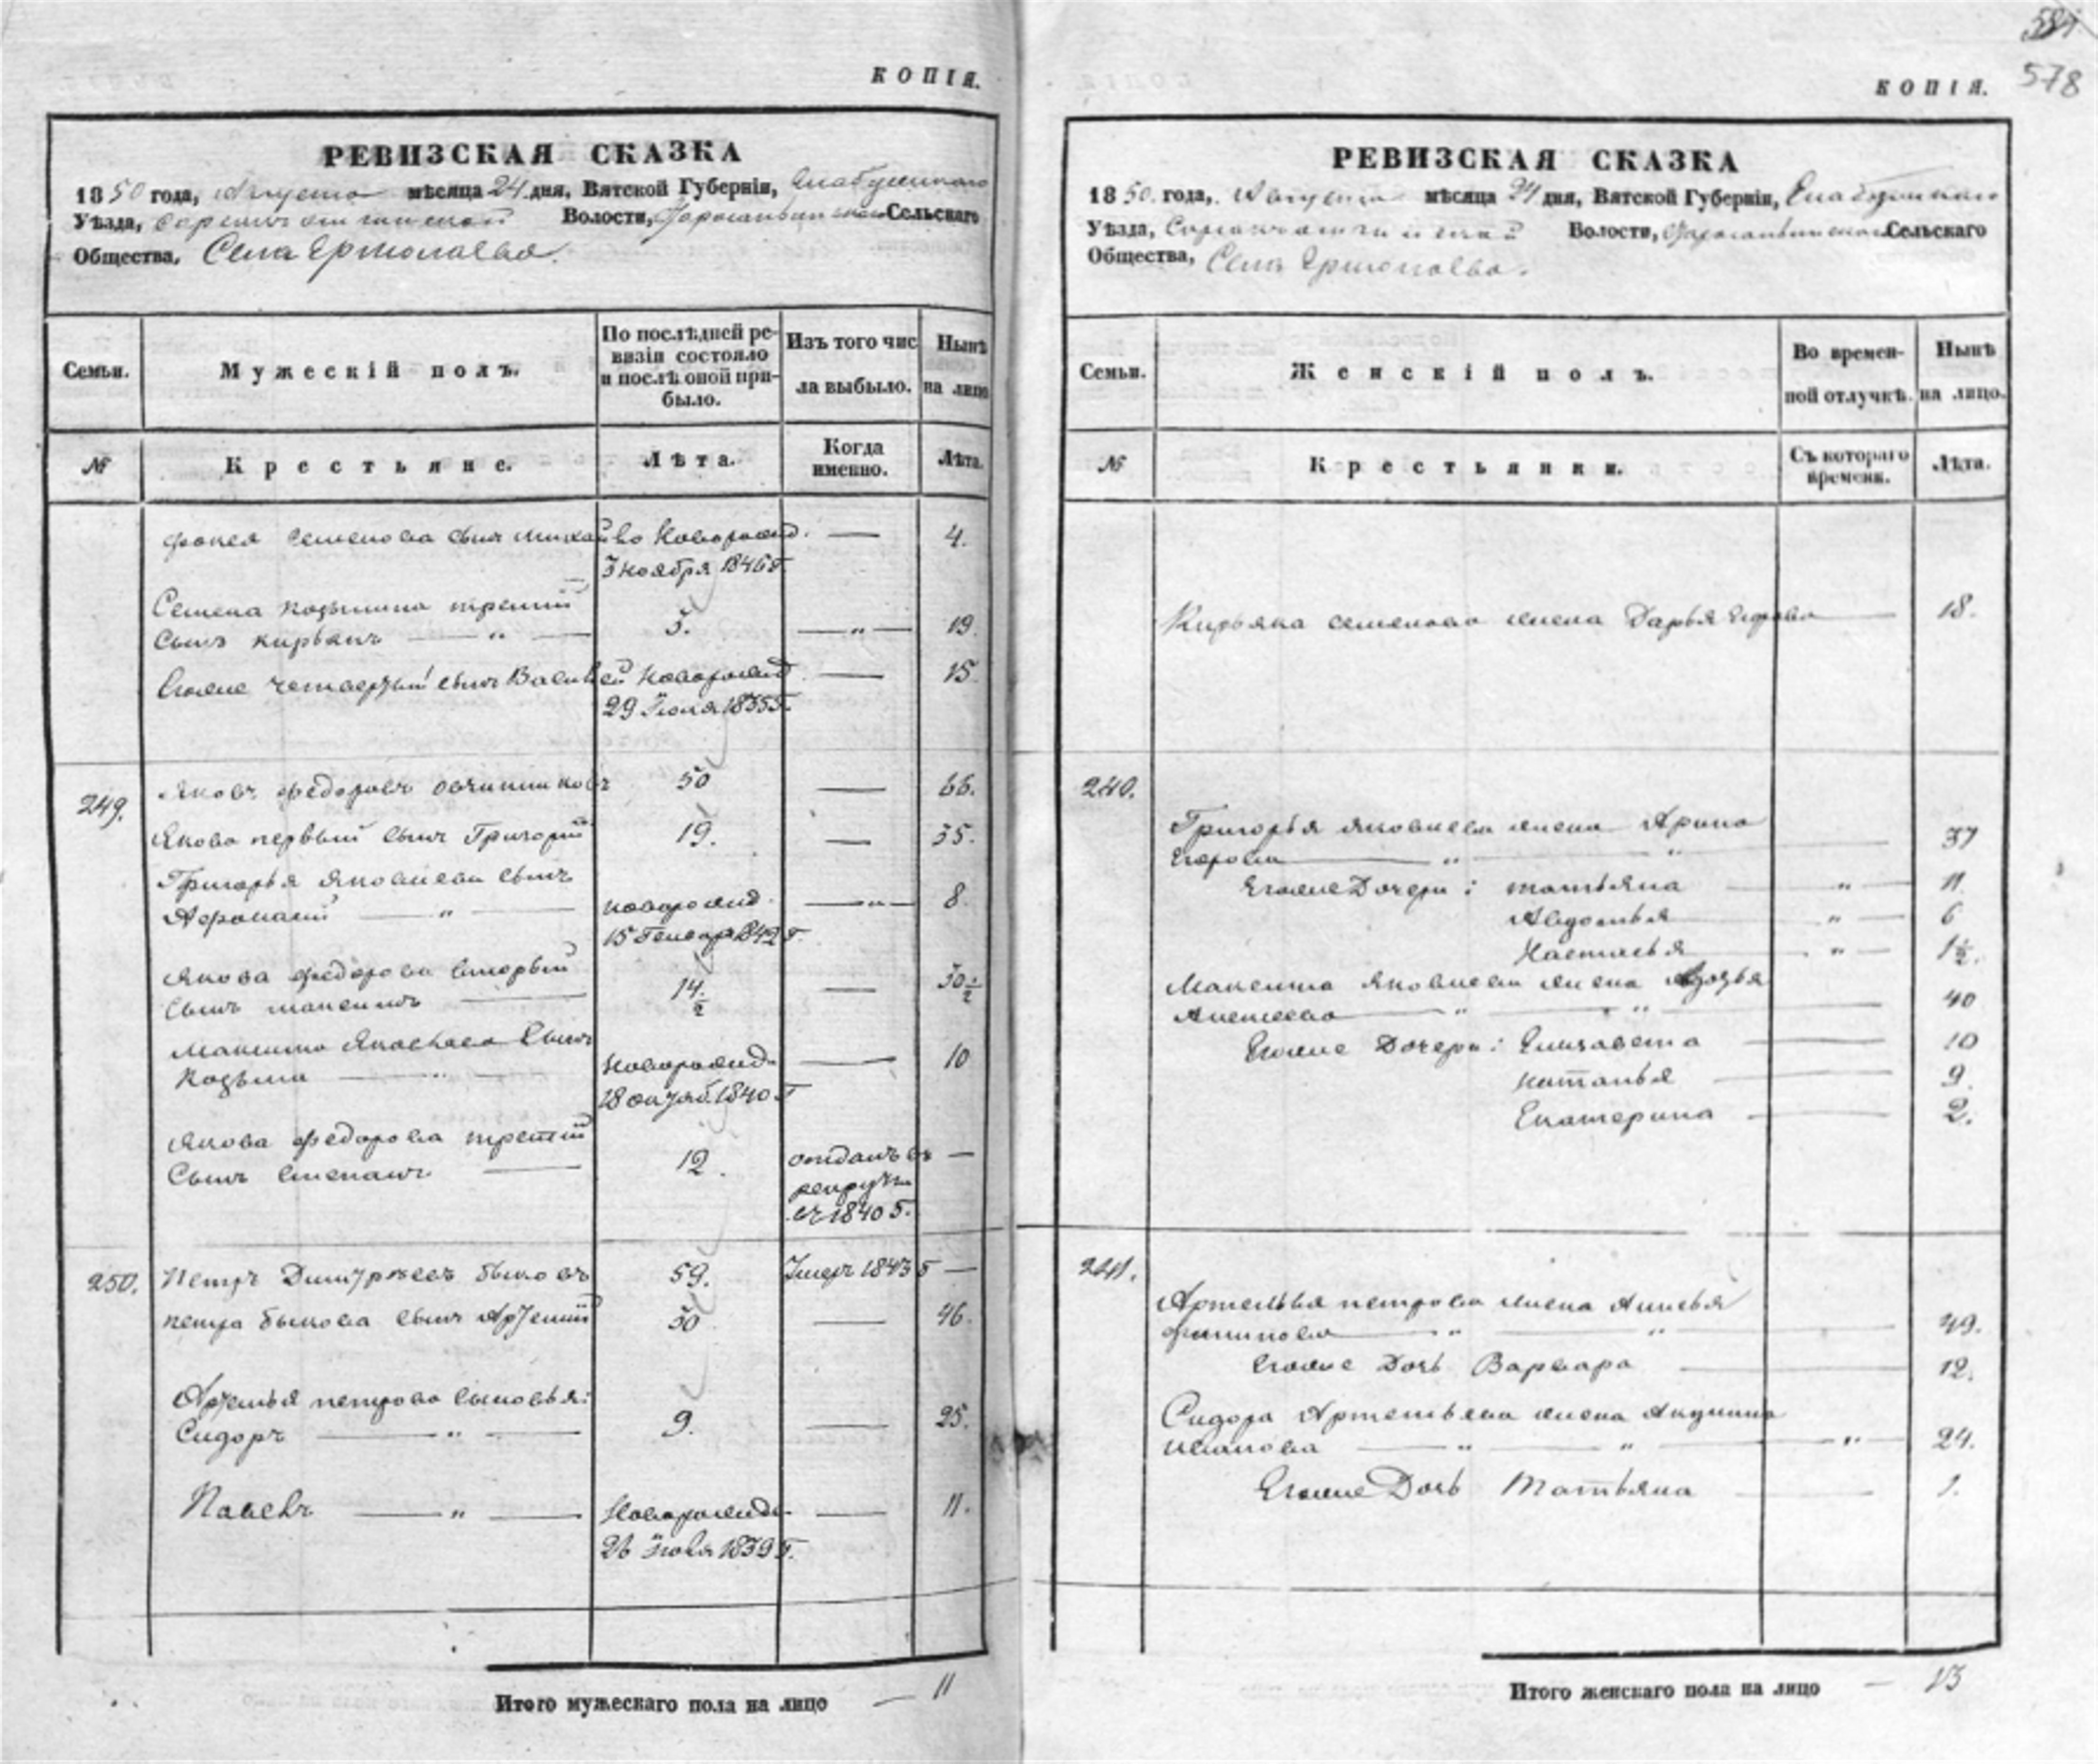 КОПІЯ.
РЕВИЗСКАЯ СКАЗКА
1850 года, Августа мѣсяца 24 дня, Вятской Губерніи, Елабужскаго
Уѣзда, Волости, Сельскаго
Общества, Села Ермолаева.
Семьи.
Мужескій полъ.
По послѣдней ре-
визіи состояло
и послѣ оной при-
было.
Изъ того чис
ла выбыло.
Нынѣ
на лицо
№
Крестьяне.
Лѣта.
Когда
именно.
Лѣта.
Фокея Семенова сынъ Новорожд. — 4.
3 ноября 1846 г
Семена Козьмина третій
сынъ Кирьянъ — „ — 5. — „ — 19.
Егоже четвертый сынъ Василей Новорожд. — 15.
29 Іюля 1835 г
249. Яковъ Федоровъ Овчинниковъ 50 — 66.
Якова первый сынъ Григорій 19. — 35.
Григорья Яковлева сынъ
— „ — новорожд. — „ — 8.
15 Генвар 1842 г.
Якова Федорова вторый
сынъ Максимъ — 14 1/2 — 30 1/2
Максима Яковлева сынъ
Козьма — „ — Новорожд. — 10
18 Октяб. 1840 г
Якова Федорова третій
Сынъ Степанъ — 12. отданъ въ —
рекруты
въ 1840 г.
250. Петръ Дмитріевъ Быковъ 59. Умеръ 1843 г —
Петра Быкова сынъ Артемій 30 — 46.
Артемья Петрова сыновья:
Сидоръ — „ — 9. — 25.
Павелъ — „ — Новорожд. — 11.
1839 г.
Итого мужескаго пола на лицо — 11
578
КОПІЯ.
РЕВИЗСКАЯ СКАЗКА
1850. года, Августа мѣсяца 24 дня, Вятской Губерніи, Елабужскаго
Уѣзда, Волости, Сельскаго
Общества, Села Ермолаева.
Семьи.
Женскій полъ.
Во времен-
ной отлучкѣ.
Нынѣ
на лицо.
№
Крестьянки.
Съ котораго
времени.
Лѣта.
Кирьяка Семенова жена Дарья — 18.
240.
Григорья Яковлева жена Арина
Егорова — „ — „ — 37
Егоже Дочери: Татьяна — „ — 11.
Авдотья — „ — 6
Настасья — „ — 1 1/2.
Максима Яковлева жена
Алексеева — „ — „ — 40
Егоже Дочери: Елизавета — 10
Наталья — 9.
Екатерина — 2.
241.
Артемья Петрова жена
Филипова — „ — „ — 49.
Егоже Дочь Варвара — 12.
Сидора Артемьева жена Акулина
Иванова — „ — „ — „ — 24.
Егоже Дочь Татьяна — 1.
Итого женскаго пола на лицо — 13